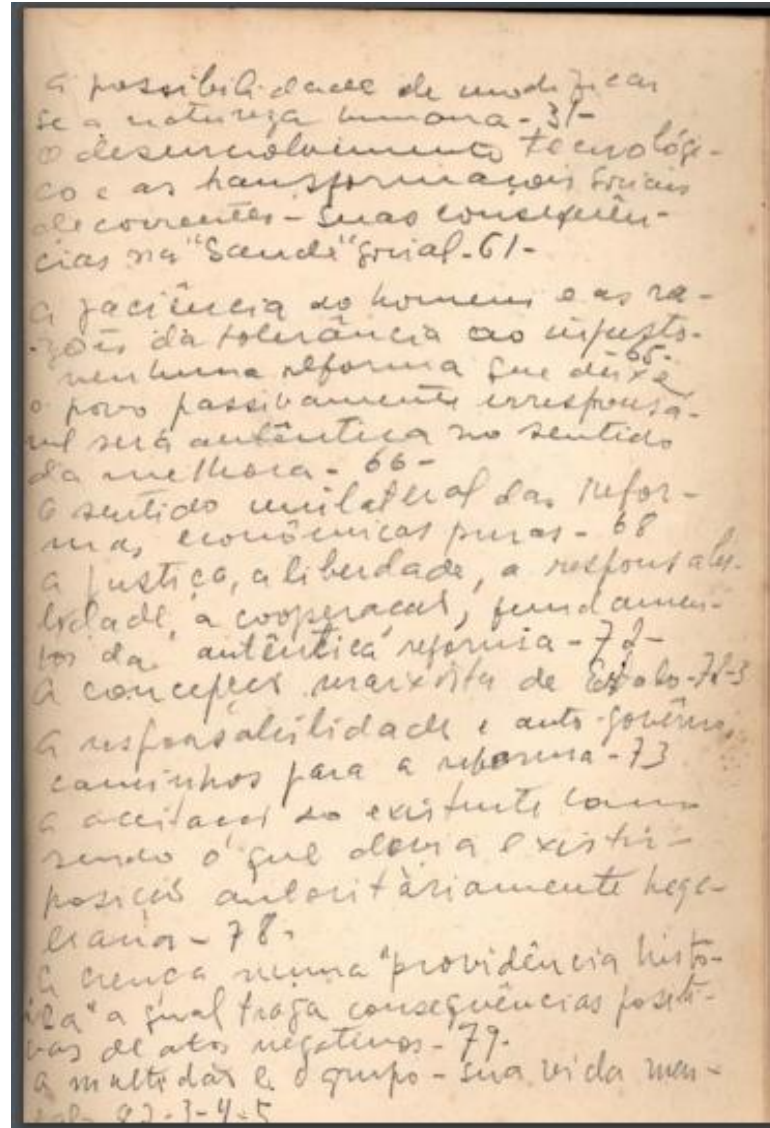 a possibilidade de modificar
se a natureza humana - 31 -
O desenvolvimento tecnológi-
co e as transformações sociais
decorrentes - suas consequên-
cias na "Saude" social - 61 -
a paciência do homem e as ra-
zões da tolerância ao injusto -
65 -
nenhuma reforma que deixe
o povo passivamente irresponsá-
vel será autêntica no sentido
da melhora - 66 -
O sentido unilateral das refor-
mas econômicas puras - 68
a justiça, a liberdade, a responsabi-
lidade, a cooperação, fundamen-
tos da autêntica reforma - 72 -
a concepção marxista de Estado - 72-3
a responsabilidade e auto-govêrno,
caminhos para a reforma - 73
a aceitação do existente como
sendo o que devia existir -
posição autoritàriamente hege-
liana - 78 -
a crença numa "providência histó-
rica" a qual traga consequências positi-
vas de atos negativos - 79 -
a multidão e o grupo - sua vida men-
tal - 82-3-4-5